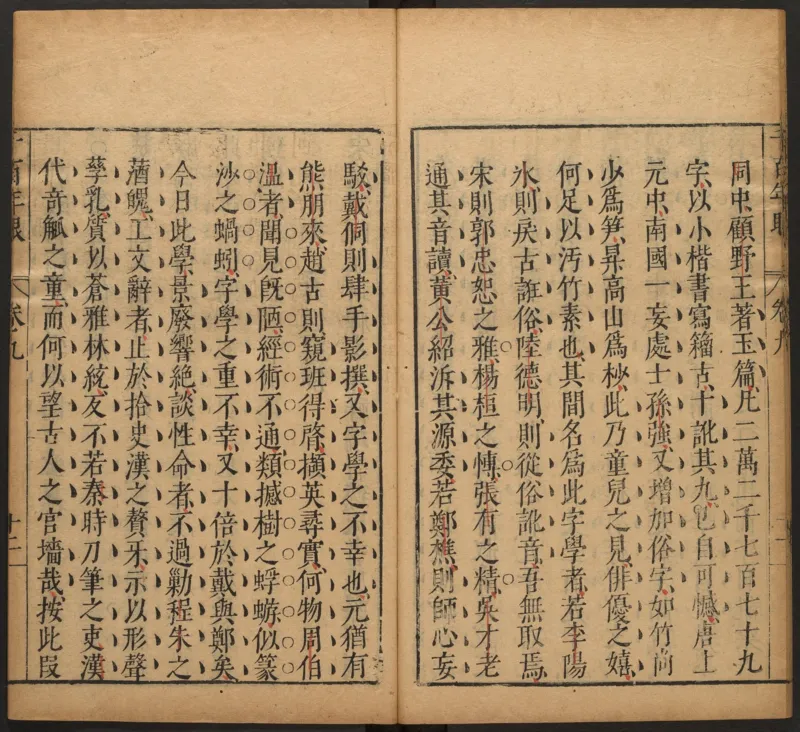 同中顧野王著玉篇凡二萬二千七百七十九
字以小楷書寫籀古十訛其九已自可憾唐上
元中南國一妄處士孫強又增加俗字如竹尚
少爲笋昇高山爲杪此乃童兒之見俳優之嬉
何足以汚竹素也其間名爲此字學者若李陽
氷則戾古誑俗陸德明則從俗訛音吾無取焉
宋則郭忠恕之雅楊桓之慱張有之精吳才老
通其音讀黃公紹泝其源委若鄭樵則師心妄
駁戴侗則肆手影撰又字學之不幸也元猶有
熊朋來趙古則窺班得啓擷英尋實何物周伯
溫者聞見旣陋經術不通類撼樹之蜉蝣似篆
沙之蝸蚓字學之重不幸又十倍於戴與鄭矣
今日此學景廢響絶談性命者不過勦程朱之
蕕魄工文辭者止於拾史漢之贅牙示以形聲
孳乳質以蒼雅林統反不若秦時刀筆之吏漢
代奇觚之童而何以望古人之宮墻哉按此叚
千百年眼
卷九
千百年眼
卷九
十二